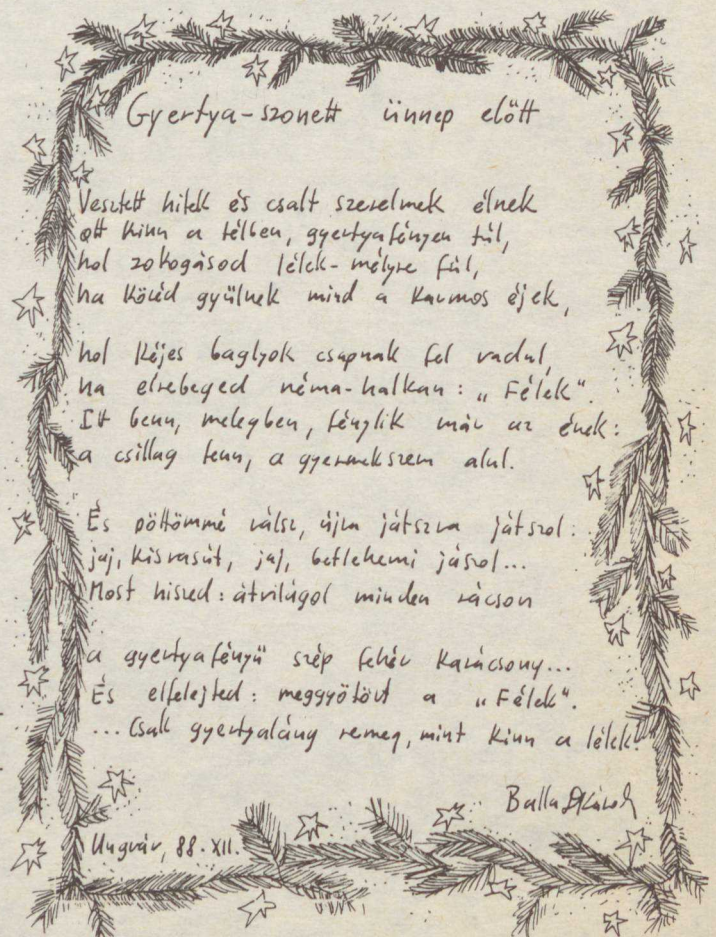 Gyertya-szonett ünnep előtt
Vesztett hitek és csalt szerelmek élnek
ott kinn a télben, gyertyafényen túl,
hol zokogásod lélek-mélyre fúl,
ha köréd gyűlnek mind a karmos éjek,
hol kéjes baglyok csapnak fel vadul,
ha elrebeged néma-halkan: „Félek".
Itt benn, melegben, fénylik már az ének:
a csillag fenn, a gyermekszem alul.
És pöttömmé válsz, újra játszva játszol:
jaj, kisvasút, jaj, betlehemi jászol...
Most hiszed: átvilágol minden rácson
a gyertyafényű szép fehér karácsony...
És elfelejted: meggyötört a „Félek".
... Csak gyertyaláng remeg, mint kinn a lélek.
Balla D. Károly
Ungvár, 88. XII.